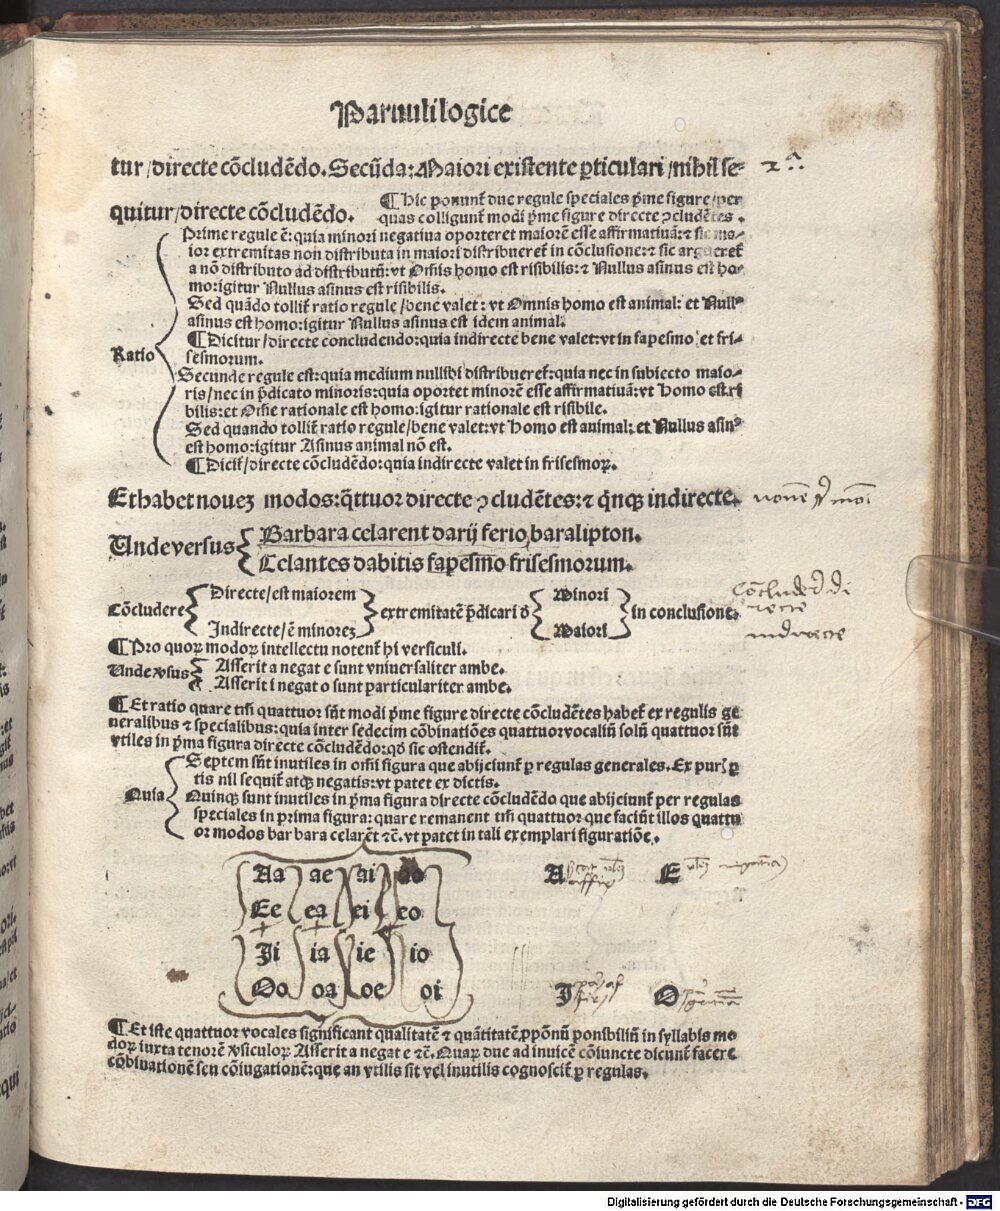 Paruuli logice
tur/directe cōcludēdo. Secūda: Maiori existente ꝑticulari/nihil se-
quitur/directe cōcludēdo.
¶ Hic ponunť due regule speciales p̄me figure/per
quas colligunť modi p̄me figure directe ↄcludētes.
Prime regule ē: quia minori negatiua oporteret maiorē esse affirmatiuā: ⁊ sic ma-
ior extremitas non distributa in maiori distribuereť in cōclusione: ⁊ sic argueretť
a nō distributo ad distributū: vt Om̄is homo est risibilis: ⁊ Nullus asinus est ho-
mo: igitur Nullus asinus est risibilis.
Sed quādo tolliť ratio regule/bene valet: vt Omnis homo est animal: et Nullꝰ
asinus est homo: igitur Nullus asinus est idem animal.
Ratio
¶ Dicitur/directe concludendo: quia indirecte bene valet: vt in fapesmo et fri-
sesmorum.
Secunde regule est: quia medium nullibi distribuereť: quia nec in subiecto maio-
ris/nec in p̄dicato minoris: quia oportet minorē esse affirmatiuā: vt Homo est ri
bilis: et Om̄e rationale est homo: igitur rationale est risibile.
Sed quando tolliť ratio regule/bene valet: vt Homo est animal: et Nullus asinꝰ
est homo: igitur Asinus animal nō est.
¶ Diciť/directe cōcludēdo: quia indirecte valet in frisesmoꝝ.
Et habet nouem modos: q̄ttuor directe ↄcludētes: ⁊ q̄nqꝫ indirecte.
Unde versus
Barbara celarent darij ferio baralipton.
Celantes dabitis fapesmo frisesmorum.
Cōcludere
Directe/est maiorem
Indirecte/ē minorem
extremitatē p̄dicari d̄
Minori
Maiori
in conclusione.
¶ Pro quoꝝ modoꝝ intellectu notenť hi versiculi.
Unde v̓sus
Asserit a negat e sunt vniuersaliter ambe.
Asserit i negat o sunt particulariter ambe.
¶ Et ratio quare tm̄ quattuor sūt modi p̄me figure directe cōcludētes habeť ex regulis ge
neralibus ⁊ specialibus: quia inter sedecim cōbinatiōes quattuor vocaliū solū quattuor sūt
vtiles in p̄ma figura directe cōcludēdo: qđ sic ostendiť.
Quia
Septem sūt inutiles in om̄i figura que abijciunť ꝑ regulas generales. Ex puris ꝑ
tis nil sequiť atqꝫ negatis: vt patet ex dictis.
Quinqꝫ sunt inutiles in p̄ma figura directe cōcludēdo que abijciunť per regulas
speciales in prima figura: quare remanent tm̄ quattuor que faciūt illos quattu
or modos barbara celarēt ⁊c̄. vt patet in tali exemplari figuratiōe.
Aa ae ai ao
A
E
Ee ea ei eo
Ii ia ie io
Oo oa oe oi
I
O
¶ Et iste quattuor vocales significant qualitatē ⁊ quātitatē ꝓpōnū ponibiliū in syllabis mo
doꝝ iuxta tenorē v̓siculoꝝ Asserit a negat e ⁊c̄. Quaꝝ due ad inuicē cōiuncte dicunť facere
cōbinationē seu cōiugationē: que an vtilis sit vel inutilis cognosciť ꝑ regulas.
Digitalisierung gefördert durch die Deutsche Forschungsgemeinschaft - DFG